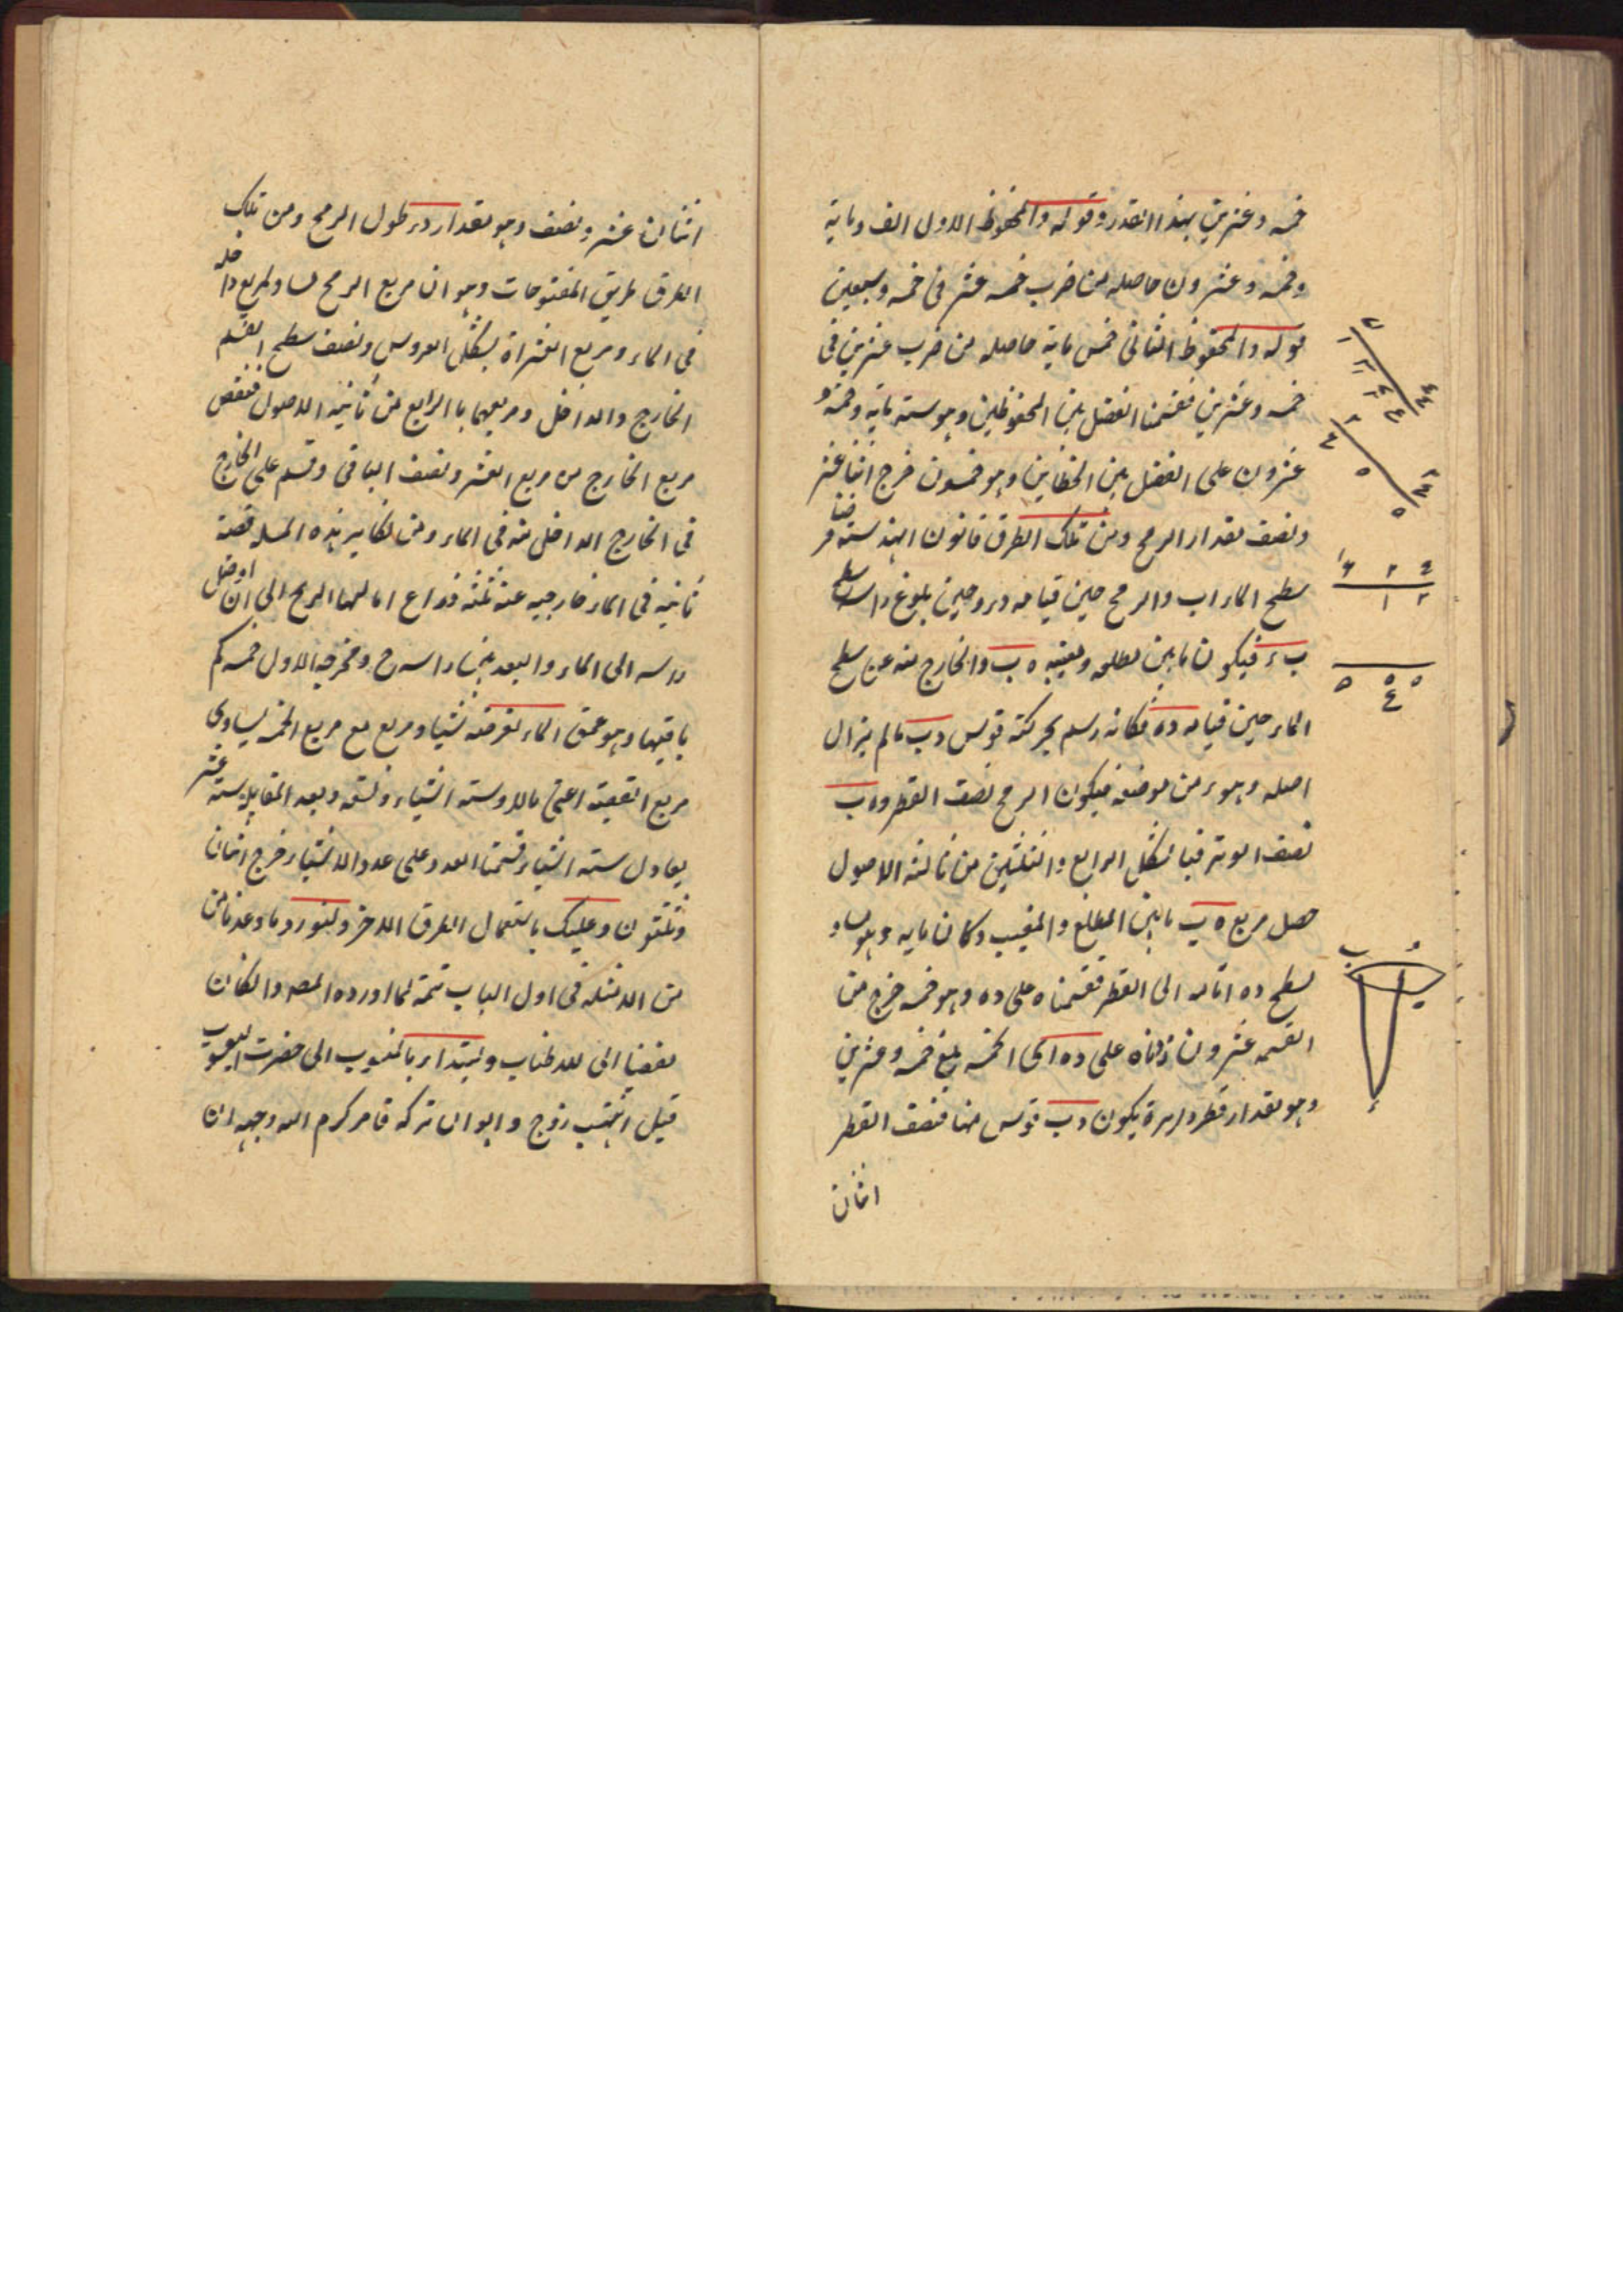 خمسه وعشرين بهذا القدر وقوله والمحفوظ الاول الف ومايه
وخمسه وعشرون حاصله من ضرب خمسه عشر فى خمسه وسبعين
قوله والمحفوظ الثانى خمس مايه حاصله من ضرب عشرين فى
خمسه وعشرين فقسمنا الفضل بين المحفوظين وهو ستمايه وخمسه و
عشرون على الفضل بين الخطاين وهو خمسون خرج اثنا عشر
ونصف مقدار الرمح ومن تلك الطرق قانون الهندسه فرضنا
سطح الماء اب والرمح حين قيامه در وحين بلوغ راسه سطح
ب ء فيكون ما بين مطلعه ومغيبه ه ب والخارج منه عن سطح
الماء حين قيامه ده فكانه رسم بحركته قوس دب ما لم يزال
اصله وهو ء من موضعه فيكون الرمح نصف القطر و ه ب
نصف الوتر فبالشكل الرابع والثلثين من ثالثه الاصول
حصل مربع ه ب ما بين المطلع والمغيب وكان مايه وهو مساو
لسطح ده اتمامه الى القطر فقسمناه على ده وهو خمسه خرج من
القسمه عشرون زدناه على ده اى الخمسه بلغ خمسه وعشرين
وهو مقدار قطر دايرة يكون دب قوس منها فنصف القطر
اثنان
اثنان عشر ونصف وهو مقدار در طول الرمح ومن تلك
الطرق طريق المفتوحات وهو ان مربع الرمح مساو لمربع داخله
فى الماء ومربع العشرة بشكل العروس ونصف سطح القسم
الخارج والداخل ومربعهما بالرابع من ثانيه الاصول فنقص
مربع الخارج من مربع العشر ونصف الباقى وقسم على الخارج
فى الخارج الداخل منه فى الماء ومن نظاير هذه المسله قصبة
ثابته فى الماء خارجيه عنه ثلثه ذراع امالها الريح الى ان اوصل
راسه الى الماء والبعد بين راسه ح ومخرجه الاول خمسه كم
باقيها وهو عمق الماء نفرضه شيئا ومربع مع مربع الخمسه يساوى
مربع القصبة اعنى مالا وسته اشياء وتسعه وبعد المقابله سته عشر
يعادل سته اشياء قسمنا العدد على عدد الاشياء خرج اثنان
وثلثون وعليك باستعمال الطرق الاخر ولنورد ما وعدنا من
من الامثله فى اول الباب تتمة لما اورده المصه وان كان
مفضيا الى الاطناب ولنبتدا بالمنسوب الى حضرت اليعسوب
قيل زوج وابوان تركه قام كرم الله وجهه ان